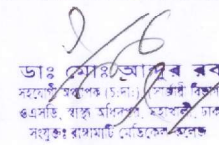 ডাঃ মোঃ আব্দুর রব
সহযোগী অধ্যাপক (চ.দাঃ) বিভাগ
ওএসডি, স্বাস্থ্য অধিদপ্তর, মহাখালী, ঢাকা
সংযুক্তঃ রাঙ্গামাটি মেডিকেল কলেজ